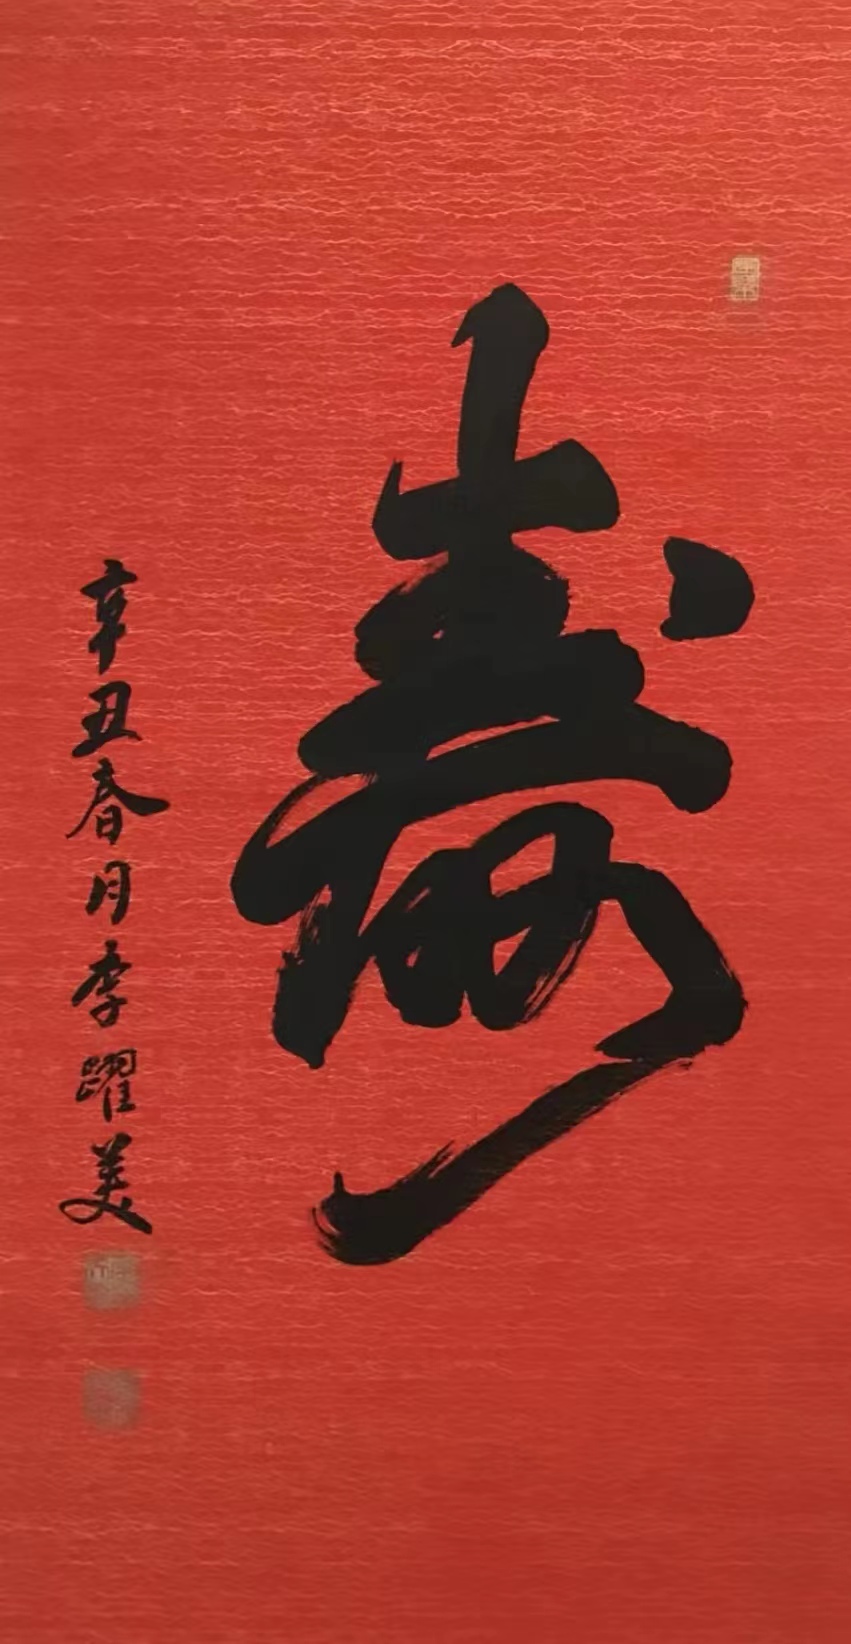 寿
辛丑春月李躍美